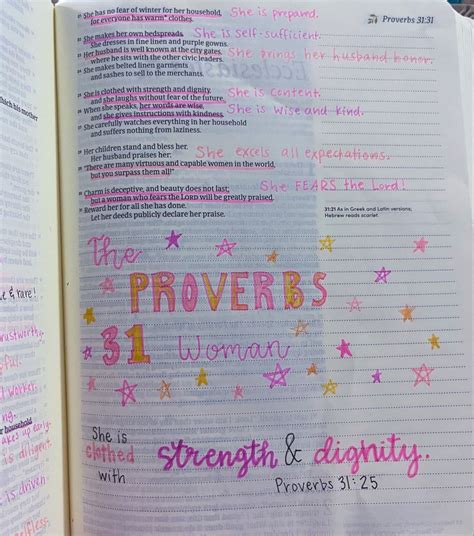 Proverbs 31:31
21 She has no fear of winter for her household, She is prepared.
for everyone has warm* clothes.
22 She makes her own bedspreads. She is self-sufficient.
She dresses in fine linen and purple gowns.
23 Her husband is well known at the city gates, She brings her husband honor.
where he sits with the other civic leaders.
24 She makes belted linen garments
and sashes to sell to the merchants.
25 She is clothed with strength and dignity, She is content.
and she laughs without fear of the future.
26 When she speaks, her words are wise, She is wise and kind.
and she gives instructions with kindness.
27 She carefully watches everything in her household
and suffers nothing from laziness.
28 Her children stand and bless her.
Her husband praises her: She excels all expectations.
29 "There are many virtuous and capable women in the world,
but you surpass them all!"
30 Charm is deceptive, and beauty does not last; She FEARS the Lord!
but a woman who fears the LORD will be greatly praised.
31 Reward her for all she has done.
Let her deeds publicly declare her praise.
31:21 As in Greek and Latin versions;
Hebrew reads scarlet.
The
PROVERBS
31 Woman
She is
clothed
with
strength & dignity.
Proverbs 31:25
his mother
& rare!
household
up early
is diligent
is driven.
selfless.